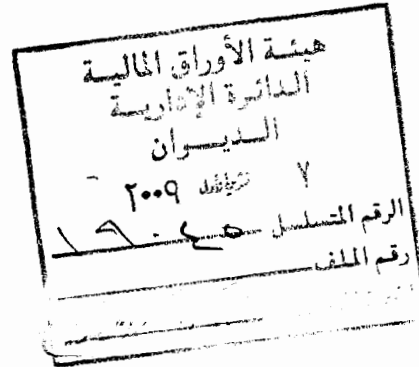 هيئة الأوراق المالية
الدائرة الإدارية
الديوان
٧ ٢٠٠٩
الرقم المتسلسل ١٩٠٤٥
رقم الملف